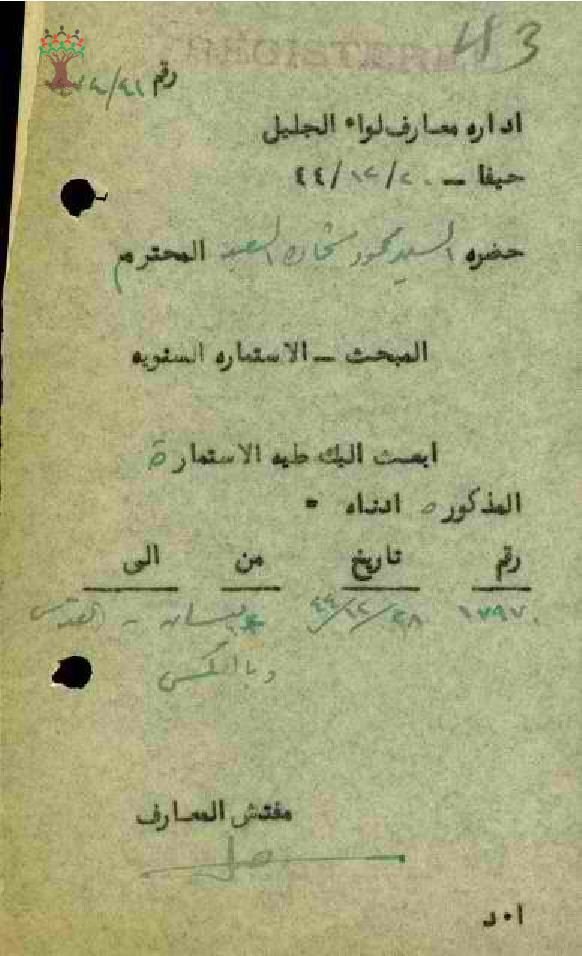 43
رقم
اداره معارف لواء الجليل
حيفا — ٢٠/١٢/٤٤
حضره السيد محمود شحاده السعيد المحترم
المبحث — الاستماره السنويه
ابعث اليك طيه الاستمارة
المذكوره ادناه =
رقم تاريخ من الى
١٧٩٧٠ ٢٨/١٢/٤٤ بيسان - القدس
وبالعكس
مفتش المعارف
ا٠د